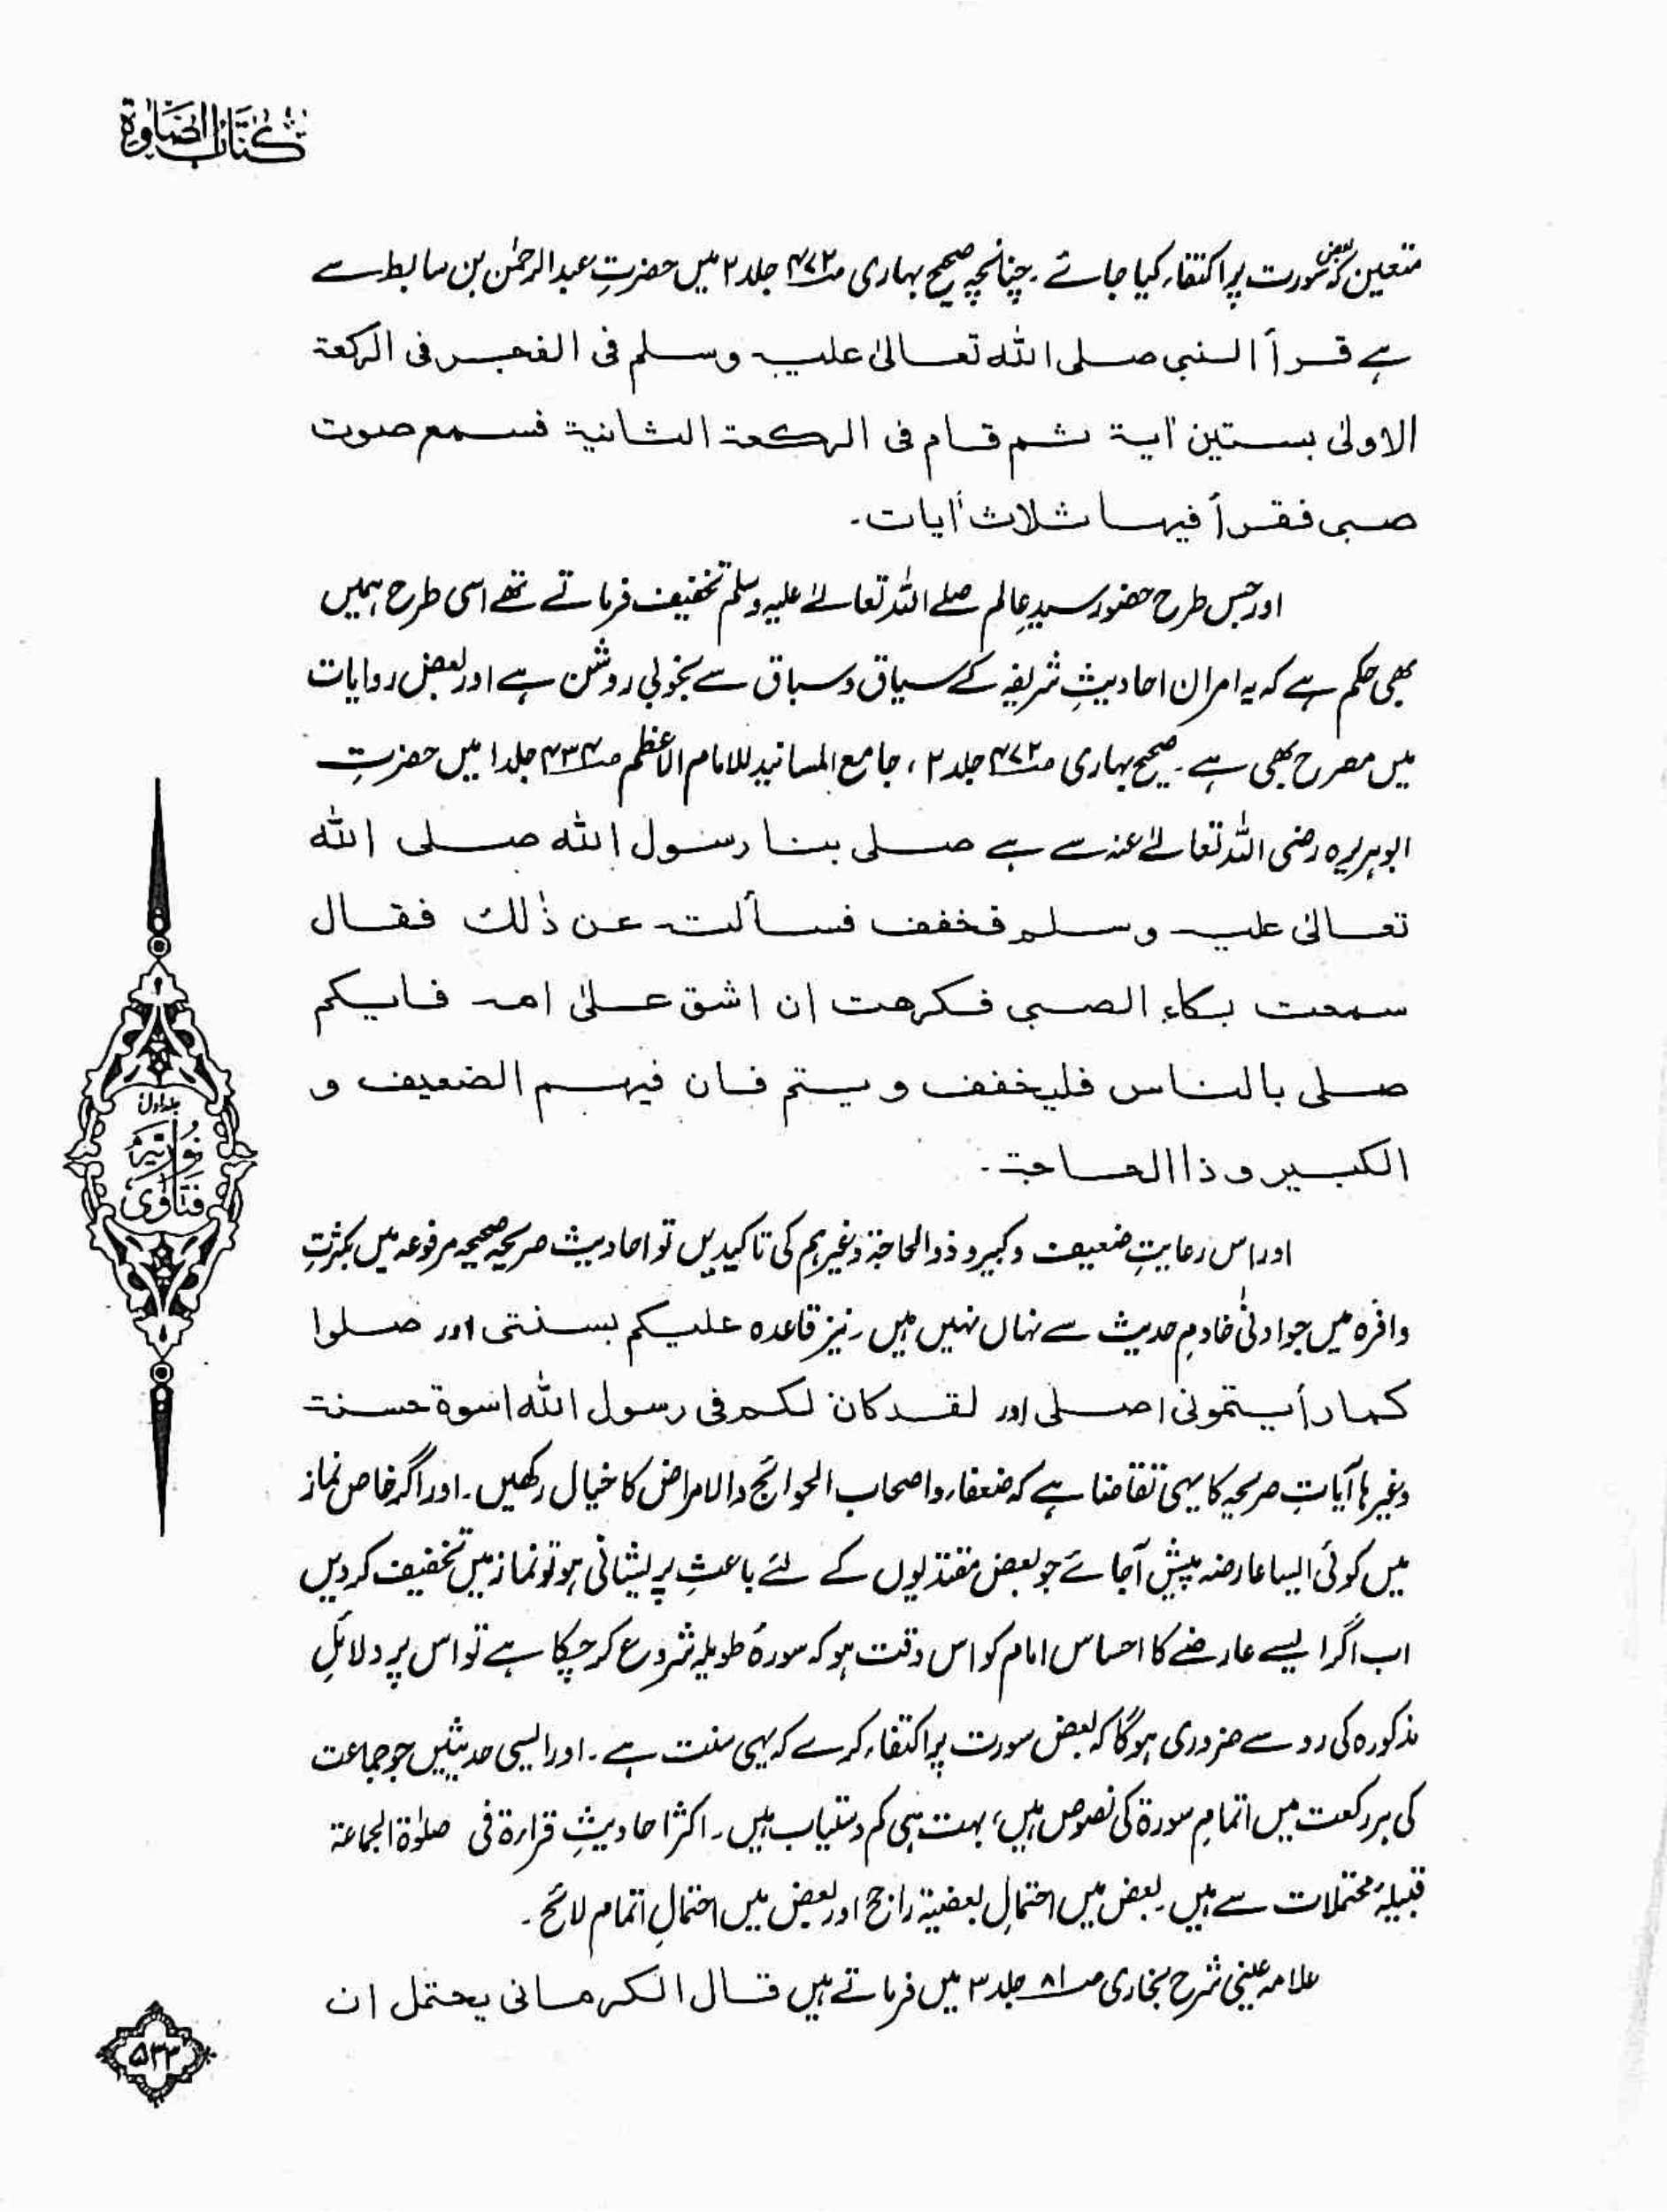 كتاب الصلوة
متعین کہ بعض سورت پر اکتفاء کیا جائے۔ چنانچہ صحیح بہاری ص۴۷۲ جلد ۲ میں حضرتِ عبدالرحمٰن بن سابط سے
ہے قرأ النبی صلی اللہ تعالیٰ علیہ وسلم فی الفجر فی الرکعة
الاولیٰ بستین اٰیة ثم قام فی الرکعة الثانیة فسمع صوت
صبی فقرأ فیها ثلاث اٰیات۔
اور جس طرح حضور سیدِ عالم صلے اللہ تعالےٰ علیہ وسلم تخفیف فرماتے تھے اسی طرح ہمیں
بھی حکم ہے کہ یہ امر ان احادیثِ شریفہ کے سیاق و سباق سے بخوبی روشن ہے اور بعض روایات
میں مصرح بھی ہے۔ صحیح بہاری ص۴۷۲ جلد ۲ ، جامع المسانید للامام الاعظم ص۴۳۴ جلد ۱ میں حضرتِ
ابوہریرہ رضی اللہ تعالےٰ عنہ سے ہے صلی بنا رسول اللہ صلی اللہ
تعالیٰ علیہ وسلم فخفف فسألت عن ذٰلک فقال
سمعت بکاء الصبی فکرهت ان اشق علیٰ امه فایکم
صلی بالناس فلیخفف و یتم فان فیهم الضعیف و
الکبیر و ذا الحاجة۔
اور اس رعایتِ ضعیف و کبیر و ذوالحاجۃ وغیرہم کی تاکیدیں تو احادیث صریحہ صحیحہ مرفوعہ میں بکثرتِ
وافرہ میں جو ادنیٰ خادمِ حدیث سے نہاں نہیں ہیں۔ نیز قاعدہ علیکم بسنتی اور صلوا
کما رأیتمونی اصلی اور لقد کان لکم فی رسول اللہ اسوة حسنة
وغیرہا آیاتِ صریحہ کا یہی تقاضا ہے کہ ضعفاء و اصحاب الحوائج والامراض کا خیال رکھیں۔ اور اگر خاص نماز
میں کوئی ایسا عارضہ پیش آجائے جو بعض مقتدیوں کے لئے باعثِ پریشانی ہو تو نماز میں تخفیف کردیں
اب اگر ایسے عارضے کا احساس امام کو اس وقت ہو کہ سورۂ طویلہ شروع کرچکا ہے تو اس پر دلائلِ
مذکورہ کی رو سے ضروری ہوگا کہ بعض سورت پر اکتفاء کرے کہ یہی سنت ہے۔ اور ایسی حدیثیں جو جماعت
کی ہر رکعت میں اتمامِ سورۃ کی نصوص ہیں، بہت ہی کم دستیاب ہیں۔ اکثر احادیثِ قراءۃ فی صلوٰۃ الجماعۃ
قبیلۂ محتملات سے ہیں۔ بعض میں احتمالِ بعضیۃ راجح اور بعض میں احتمالِ اتمام لائح۔
علامہ عینی شرح بخاری ص۸۱ جلد ۳ میں فرماتے ہیں قال الکرمانی یحتمل ان
جلد اول
نوریہ
فتاوی
۵۳۳